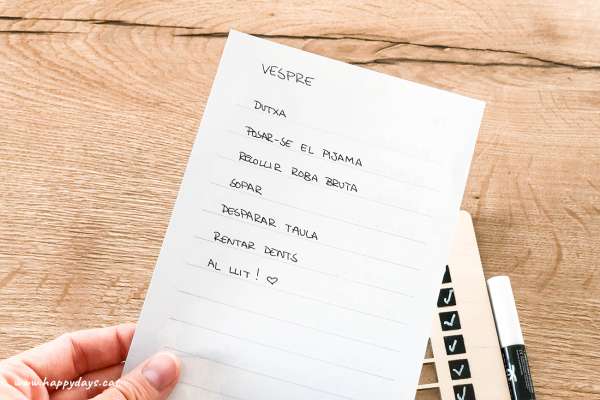 VESPRE
DUTXA
POSAR-SE EL PIJAMA
RECOLLIR ROBA BRUTA
SOPAR
DESPARAR TAULA
RENTAR DENTS
AL LLIT! ♡
www.happydays.cat